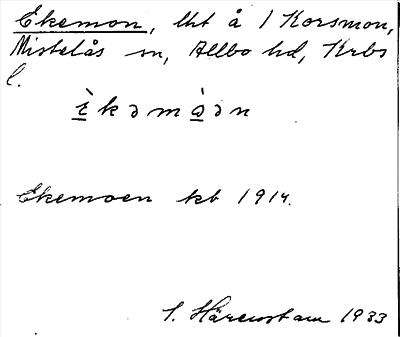 Ekemon, lht å 1 Korsmon,
Mistelås sn, Allbo hd, Krbs
l.
ìkəmåən
Ekemoen kb 1914.
S. Härenstam 1933